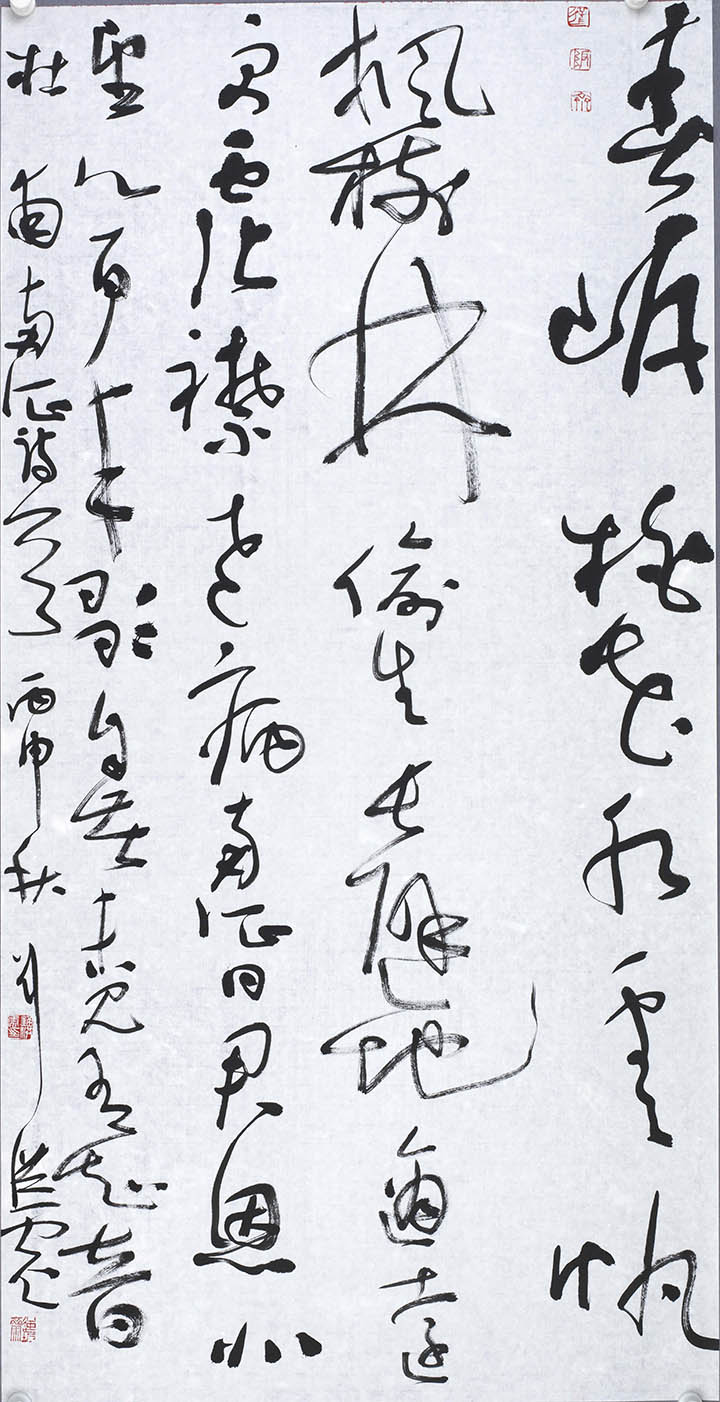 春岸桃花水雲帆
楓樹林偷生長避地適遠
更霑襟老病南征日君恩北
望心百年歌自苦未見有知音
杜甫南征詩一首丙申秋月